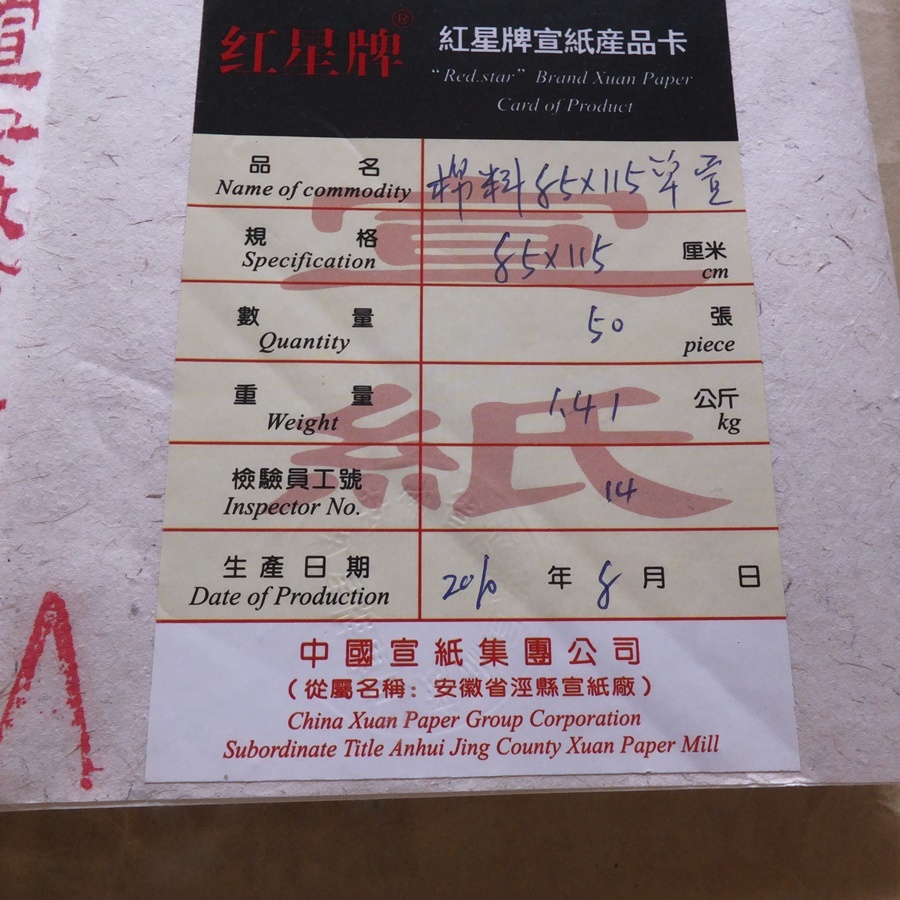 红星牌®
紅星牌宣紙産品卡
“Red.star” Brand Xuan Paper
Card of Product
品 名
Name of commodity
棉料 85×115 单宣
規 格
Specification
85×115
厘米
cm
數 量
Quantity
50
張
piece
重 量
Weight
1.41
公斤
kg
檢驗員工號
Inspector No.
14
生產日期
Date of Production
2010 年 8 月 日
宣紙
中國宣紙集團公司
（從屬名稱：安徽省涇縣宣紙廠）
China Xuan Paper Group Corporation
Subordinate Title Anhui Jing County Xuan Paper Mill
宣